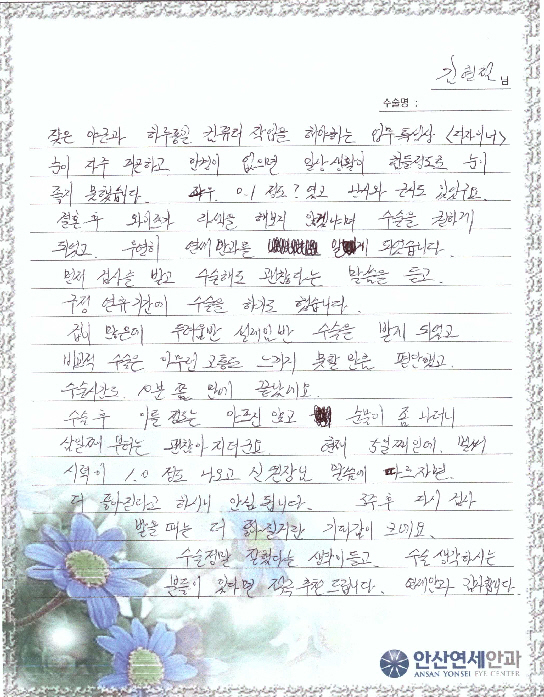 김현진 님
수술명 :
잦은 야근과 하루종일 컴퓨터 작업을 해야하는 업무 특성상 <디자이너>
눈이 자주 피곤하고 안경이 없으면 일상생활이 힘들정도로 눈이
좋지 못했습니다. 0.1 정도? 였고 난시와 근시도 있었구요.
결혼 후 와이프가 라식을 해보지 않겠냐며 수술을 권하게
되었고. 우연히 연세안과를 알게 되었습니다.
먼저 검사를 받고 수술해도 괜찮다는 말씀을 듣고.
구정 연휴기간에 수술을 하기로 했습니다.
겁이 많은데 두려움반 설레임반 수술을 받게 되었고
비교적 수술은 아무런 고통도 느끼지 못할 만큼 편안했고.
수술시간도 10분 좀 안에 끝났네요.
수술 후 이틀 정도는 아프진 않고 눈물이 좀 나더니
삼일째 부터는 괜찮아 지더군요. 현재 5일째인데. 벌써
시력이 1.0 정도 나오고 신원장님 말씀에 따르자면.
더 좋아진다고 하시니 안심 됩니다. 2주후 다시 검사
받을 때는 더 좋아질거란 기대감이 크네요.
수술정말 잘했다는 생각이들고. 수술 생각하시는
분들이 있다면 적극 추천 드립니다. 연세안과 감사합니다.
안산연세안과
ANSAN YONSEI EYE CENTER